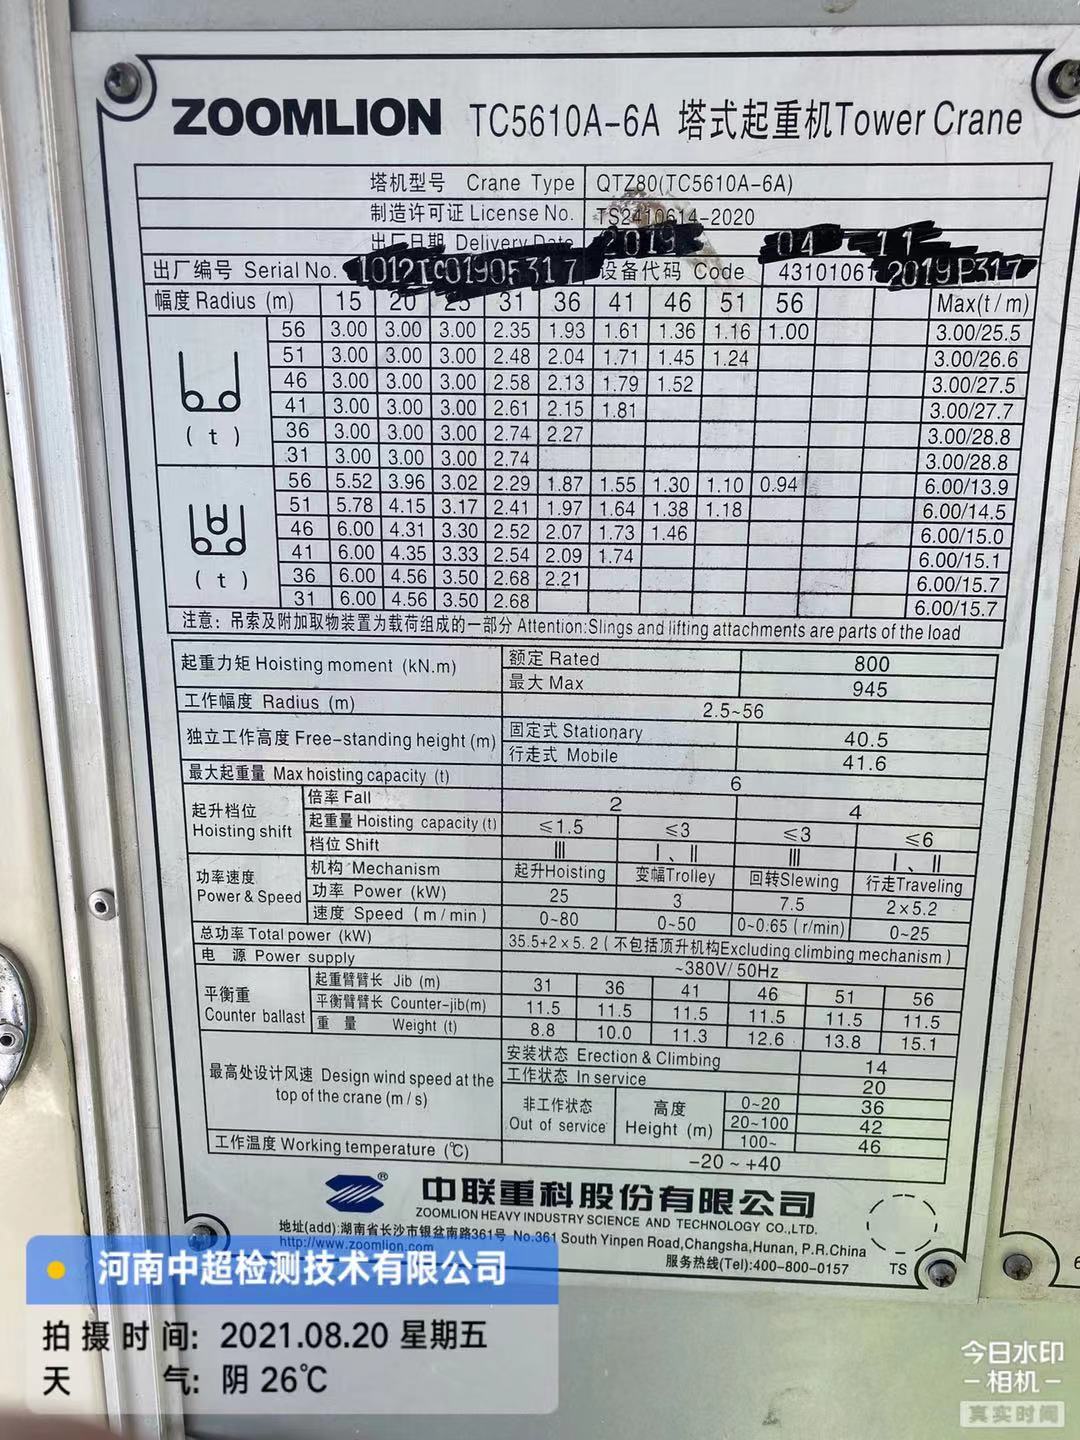 ZOOMLION TC5610A-6A 塔式起重机Tower Crane
塔机型号 Crane Type QTZ80(TC5610A-6A)
制造许可证 License No. TS2410614-2020
出厂日期 Delivery Date 2019 04 11
出厂编号 Serial No. 设备代码 Code 43101061 2019P317
幅度 Radius (m) 15 20 25 31 36 41 46 51 56 Max(t/m)
56 3.00 3.00 3.00 2.35 1.93 1.61 1.36 1.16 1.00 3.00/25.5
51 3.00 3.00 3.00 2.48 2.04 1.71 1.45 1.24 3.00/26.6
46 3.00 3.00 3.00 2.58 2.13 1.79 1.52 3.00/27.5
41 3.00 3.00 3.00 2.61 2.15 1.81 3.00/27.7
(t)
36 3.00 3.00 3.00 2.74 2.27 3.00/28.8
31 3.00 3.00 3.00 2.74 3.00/28.8
56 5.52 3.96 3.02 2.29 1.87 1.55 1.30 1.10 0.94 6.00/13.9
51 5.78 4.15 3.17 2.41 1.97 1.64 1.38 1.18 6.00/14.5
46 6.00 4.31 3.30 2.52 2.07 1.73 1.46 6.00/15.0
41 6.00 4.35 3.33 2.54 2.09 1.74 6.00/15.1
(t)
36 6.00 4.56 3.50 2.68 2.21 6.00/15.7
31 6.00 4.56 3.50 2.68 6.00/15.7
注意: 吊索及附加取物装置为载荷组成的一部分 Attention:Slings and lifting attachments are parts of the load
起重力矩 Hoisting moment (kN.m) 额定 Rated 800
最大 Max 945
工作幅度 Radius (m) 2.5~56
独立工作高度 Free-standing height (m) 固定式 Stationary 40.5
行走式 Mobile 41.6
最大起重量 Max hoisting capacity (t) 6
起升档位 Hoisting shift 倍率 Fall 2 4
起重量 Hoisting capacity (t) ≤1.5 ≤3 ≤3 ≤6
档位 Shift Ⅲ Ⅰ、Ⅱ Ⅲ Ⅰ、Ⅱ
功率速度 Power & Speed 机构 Mechanism 起升Hoisting 变幅Trolley 回转Slewing 行走Traveling
功率 Power (kW) 25 3 7.5 2×5.2
速度 Speed (m/min) 0~80 0~50 0~0.65 (r/min) 0~25
总功率 Total power (kW) 35.5+2×5.2 (不包括顶升机构Excluding climbing mechanism)
电 源 Power supply ~380V/50Hz
平衡重 Counter ballast 起重臂臂长 Jib (m) 31 36 41 46 51 56
平衡臂臂长 Counter-jib(m) 11.5 11.5 11.5 11.5 11.5 11.5
重 量 Weight (t) 8.8 10.0 11.3 12.6 13.8 15.1
最高处设计风速 Design wind speed at the top of the crane (m/s) 安装状态 Erection & Climbing 14
工作状态 In service 20
非工作状态 Out of service 高度 Height (m) 0~20 36
20~100 42
100~ 46
工作温度 Working temperature (℃) -20 ~ +40
® 中联重科股份有限公司
ZOOMLION HEAVY INDUSTRY SCIENCE AND TECHNOLOGY CO.,LTD.
地址(add):湖南省长沙市银盆南路361号 No.361 South Yinpen Road,Changsha,Hunan, P.R.China
http://www.zoomlion.com
服务热线(Tel):400-800-0157 TS
河南中超检测技术有限公司
拍摄时间: 2021.08.20 星期五
天 气: 阴 26℃
今日水印
-相机-
真实时间